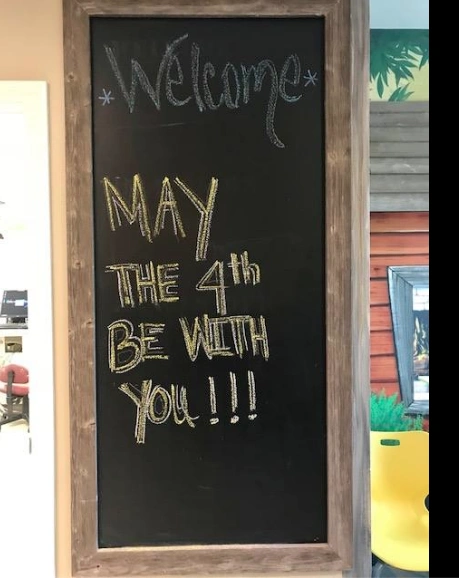 *Welcome*
MAY
THE 4th
BE WITH
YOU!!!